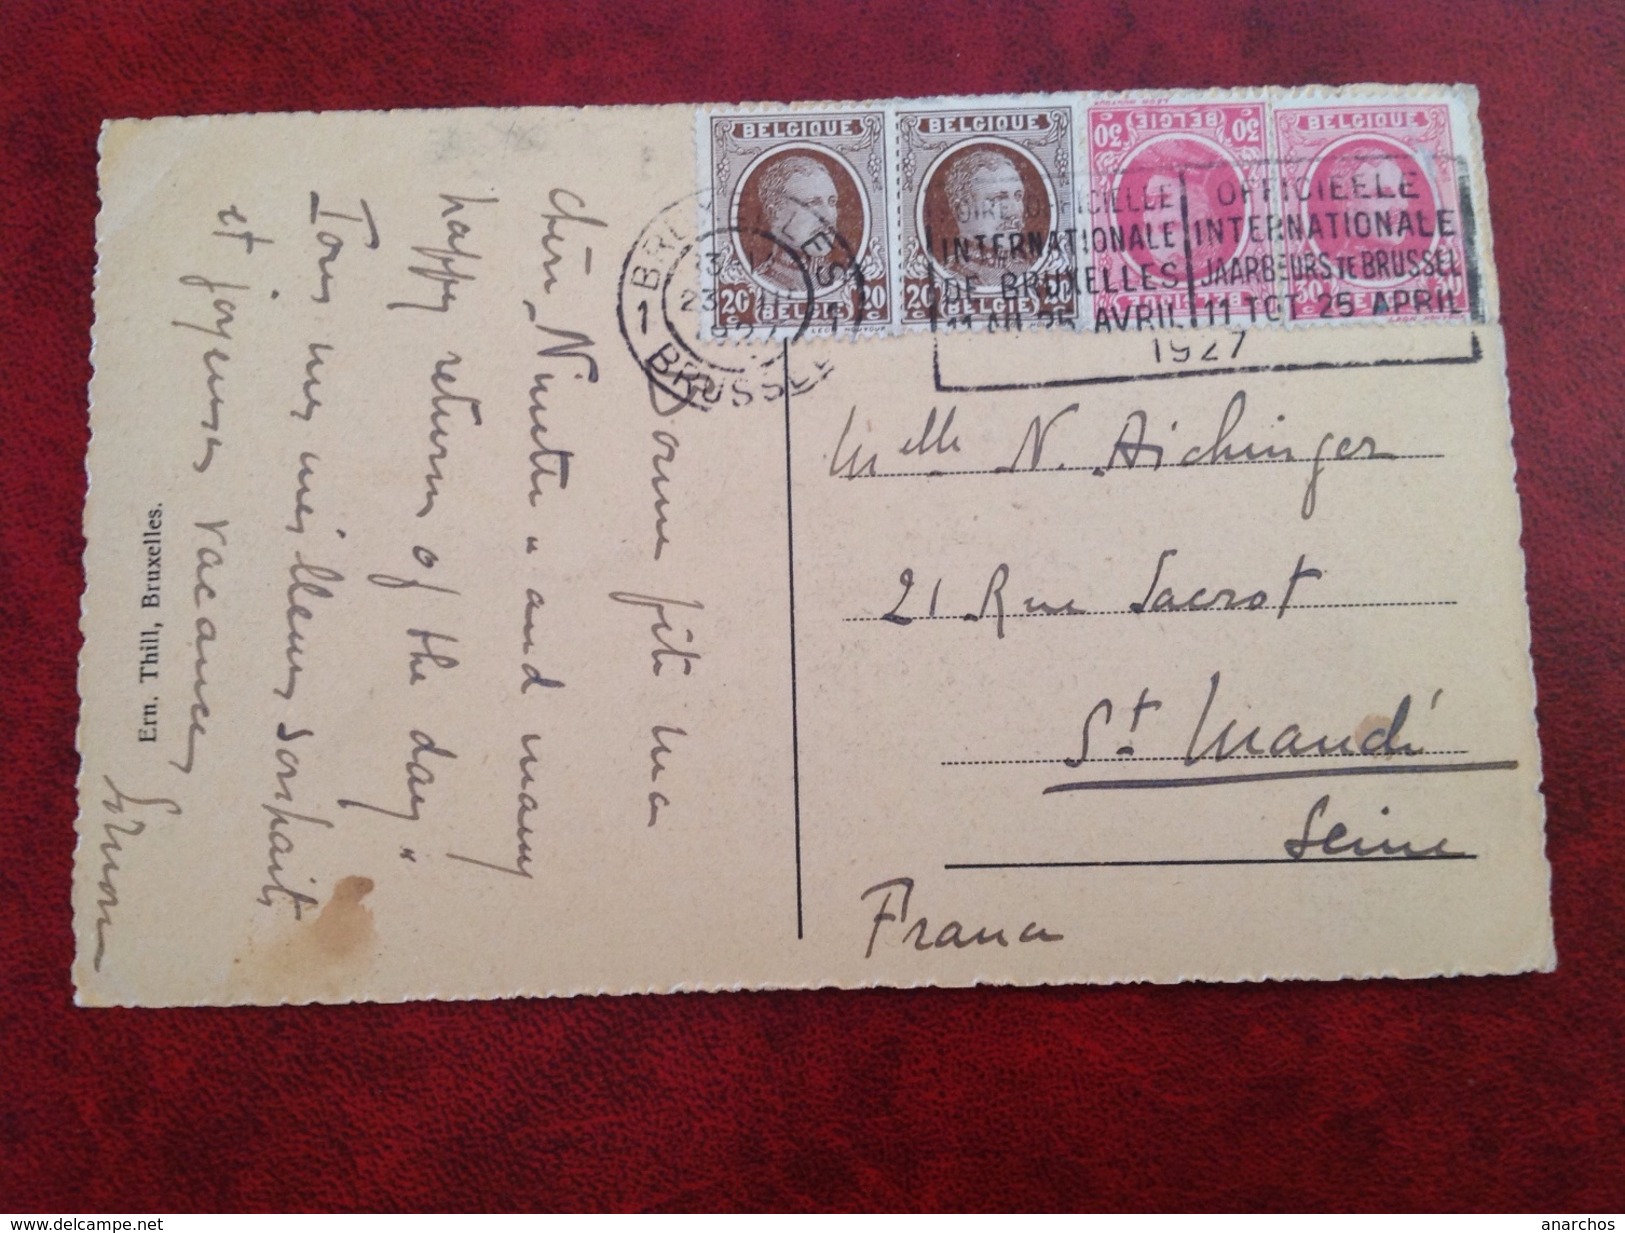 BELGIQUE
20c 20c
BELGIË
BELGIQUE
20c 20c
BELGIE
BELGIË
BELGIQUE
BRUXELLES
1 BRUSSEL 1
23 III
1927
FOIRE OFFICIELLE
INTERNATIONALE
DE BRUXELLES
11 AU 25 AVRIL
OFFICIEELE
INTERNATIONALE
JAARBEURS TE BRUSSEL
11 TOT 25 APRIL
1927
Bonne fête ma
chère Ninette " and many
happy returns of the day "
Tous mes meilleurs souhaits
et joyeuses vacances
Simon
Ern. Thill, Bruxelles.
Melle N. Aichinger
21 Rue Sacrot
St Mandé
Seine
France
www.delcampe.net
anarchos